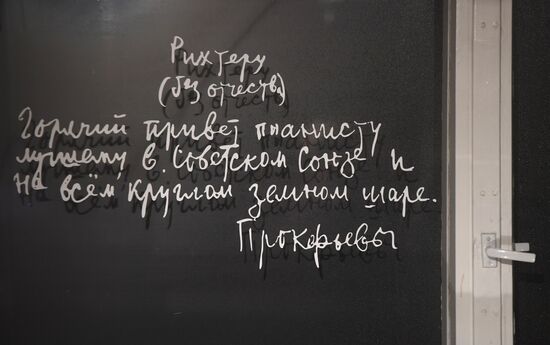 Рихтеру
(без отчеств.)
Горячий привет пианисту
лучшему в. Советском Союзе и
на всём круглом земном шаре.
Прокофьевы